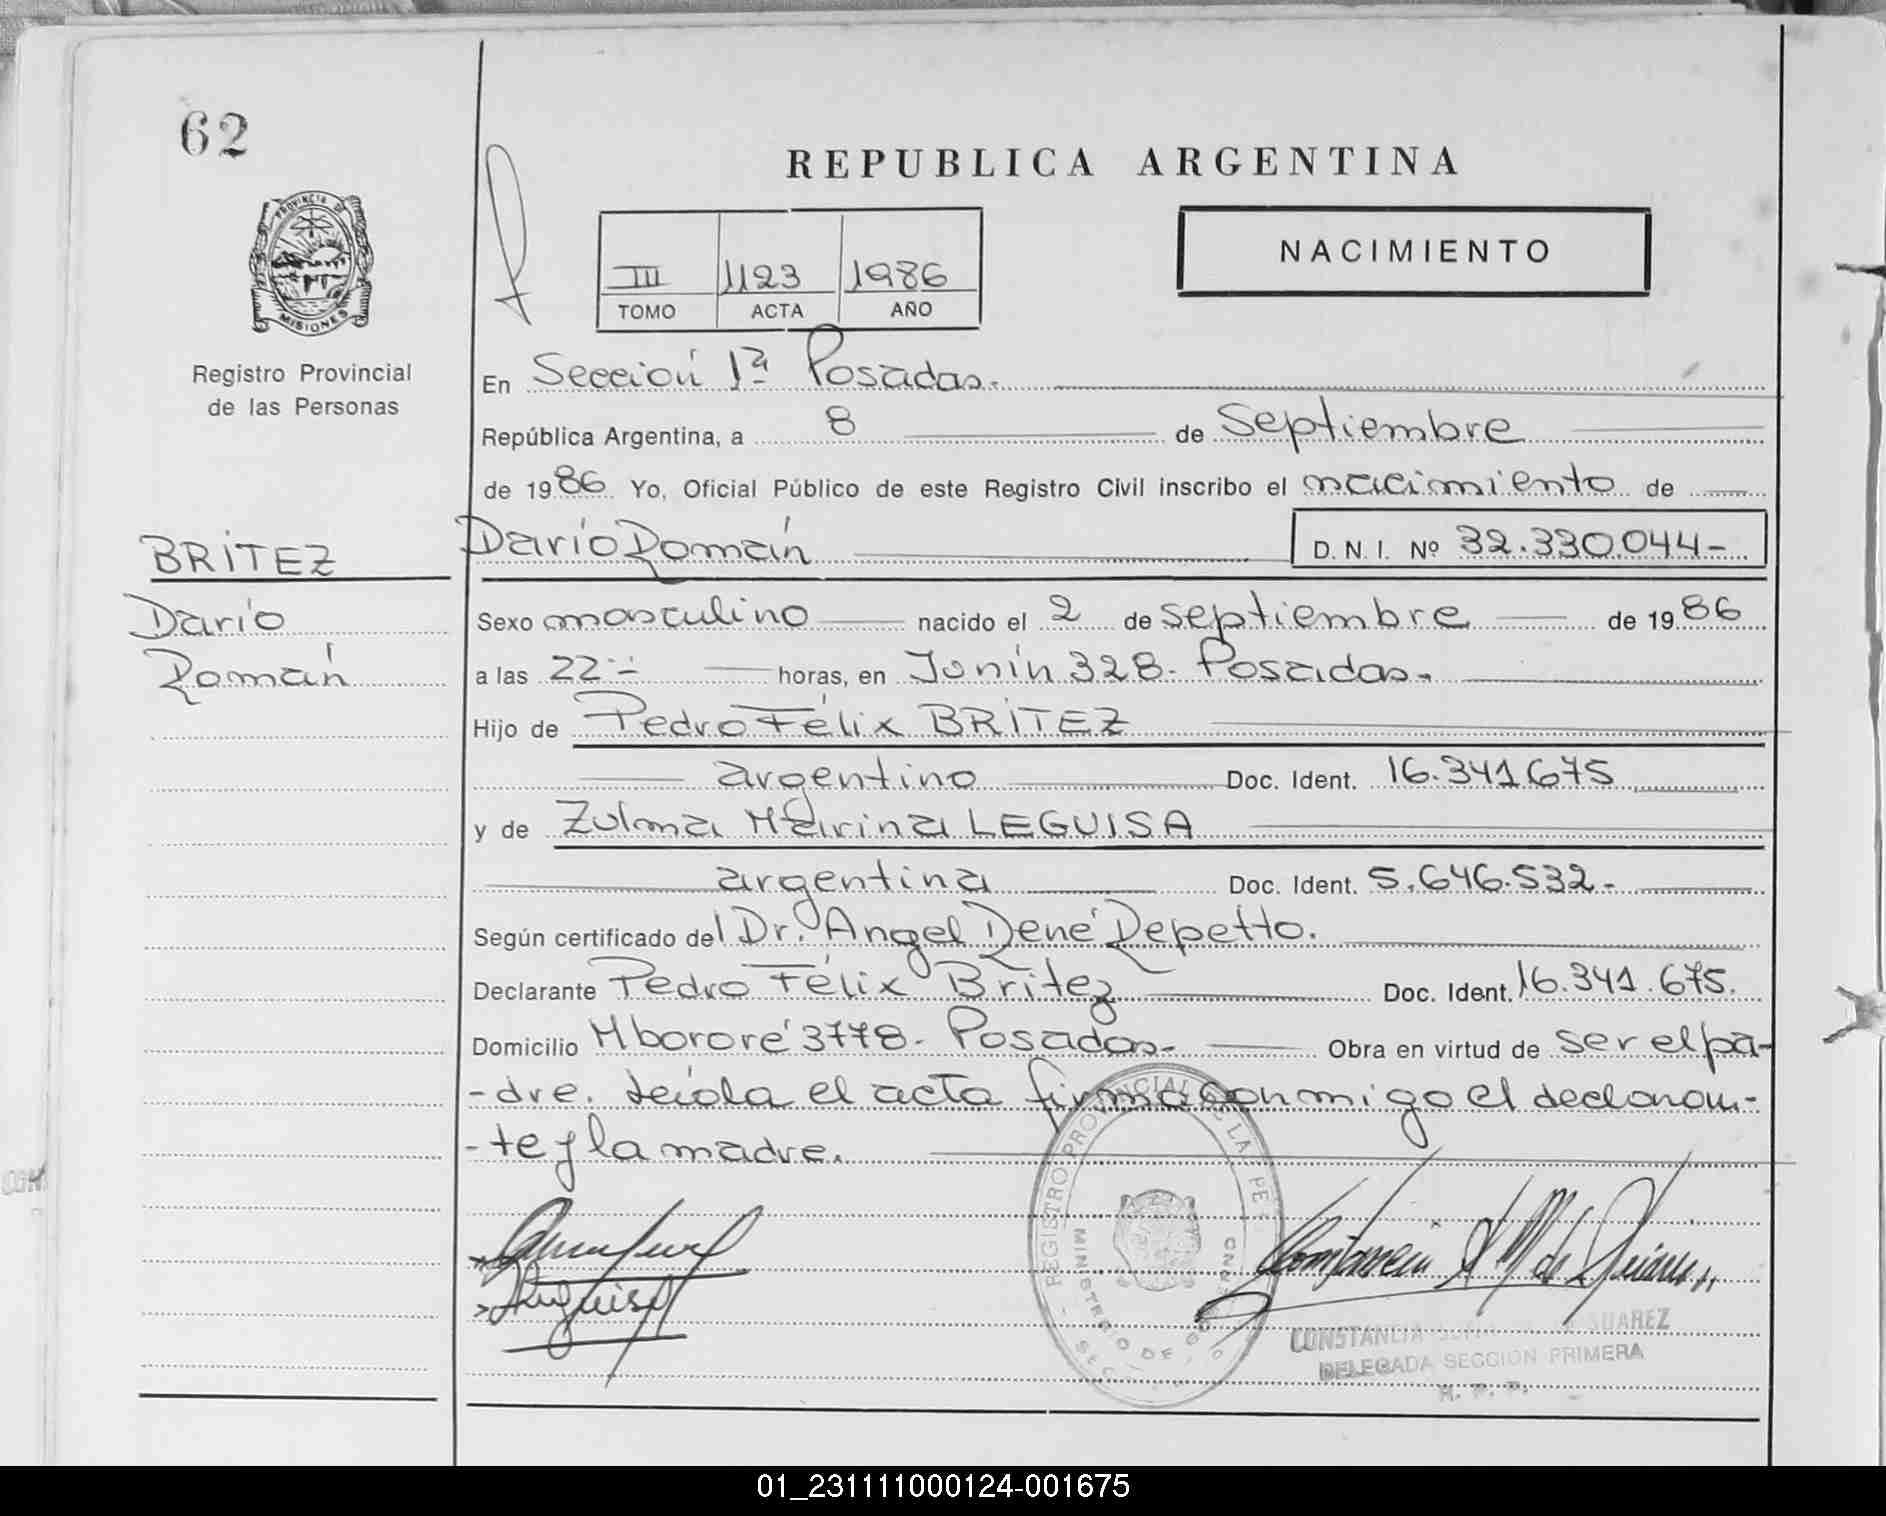 62
REPUBLICA ARGENTINA
NACIMIENTO
III 1123 1986
TOMO ACTA AÑO
PROVINCIA DE
MISIONES
Registro Provincial
de las Personas
En Sección 1ª Posadas.
República Argentina, a 8 de Septiembre
de 1986 Yo, Oficial Público de este Registro Civil inscribo el nacimiento de
BRITEZ
Darío Román D. N. I. Nº 32.330.044-
Darío
Román
Sexo masculino nacido el 2 de septiembre de 1986
a las 22 horas, en Junín 328. Posadas.
Hijo de Pedro Félix BRITEZ
argentino Doc. Ident. 16.341675
y de Zulma Marina LEGUISA
argentina Doc. Ident. 5.646.532-
Según certificado del Dr. Angel René Repetto.
Declarante Pedro Félix Britez Doc. Ident. 16.341.675.
Domicilio Mbororé 3778. Posadas. Obra en virtud de ser el pa-
-dre. Leída el acta firma conmigo el declaran-
-te y la madre.
REGISTRO PROVINCIAL DE LAS PER
MINISTERIO DE GOB
CONSTANCIA SUAREZ
DELEGADA SECCION PRIMERA
R. P. P.
01_231111000124-001675